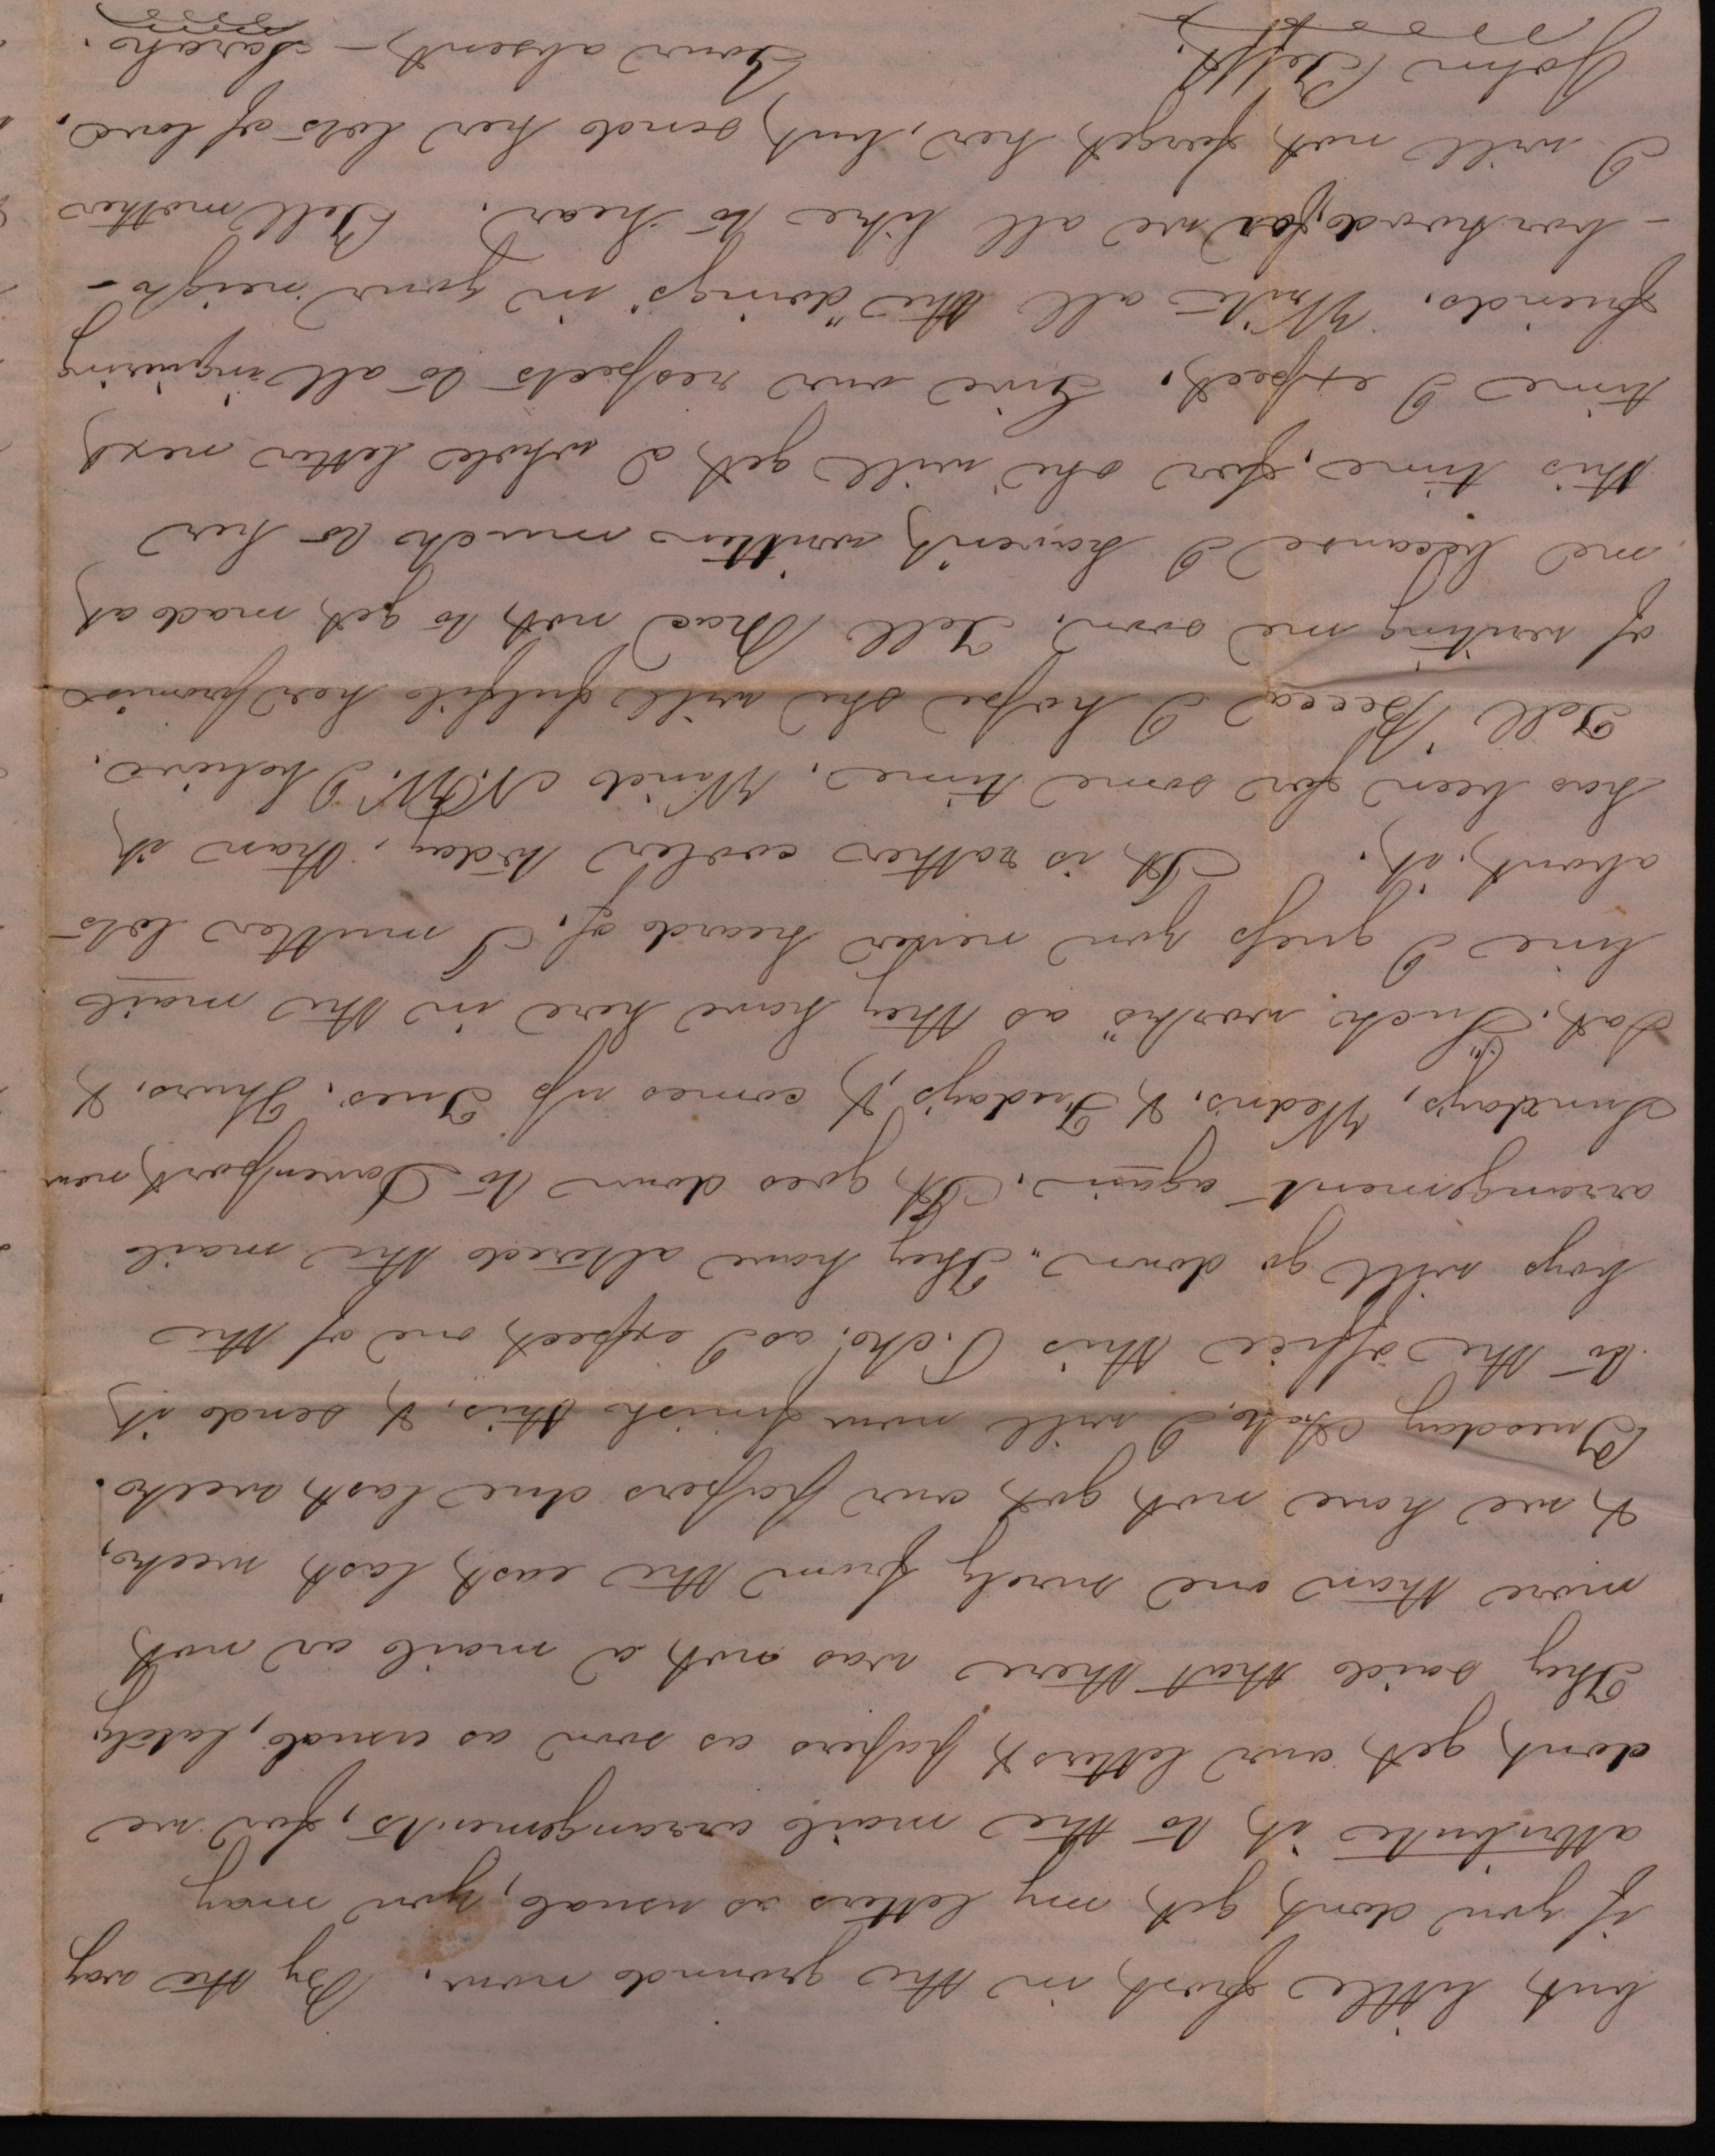 but little frost in the ground now. By the way
if you dont get my letters as usual, you may
attribute it to the mail arrangements, for we
dont get our letters & papers as soon as usual, lately.
They said that there was not a mail or not
more than one surely from the east last week,
& we have not got our papers due last week.
Tuesday Feb. I will now finish this, & send it
to the office this as I expect one of the
boys will go down. They have altered the mail
arrangement again. It goes down to Davenport, now
Sunday's, Wedn's. & Friday's, & comes up Tues. Thurs. &
Sat. Such "works" as they have here in the mail
line I guess you never heard of. I mutter lots
about it. It is rather cooler today, than it
has been for some time. Wind N.W. I believe.
Tell Becca I hope she will fulfil her promise
of writing me soon. Tell Mac not to get mad at
me because I havent written much to her
this time, for she will get a whole letter next
time I expect. Give our respects to all inquiring
friends. Write all the "doings" in your neigh-
-borhood, for we all like to hear. Tell mother
I will not forget her, but send her lots of love.
Your absent - Sarah.
John Tefft.